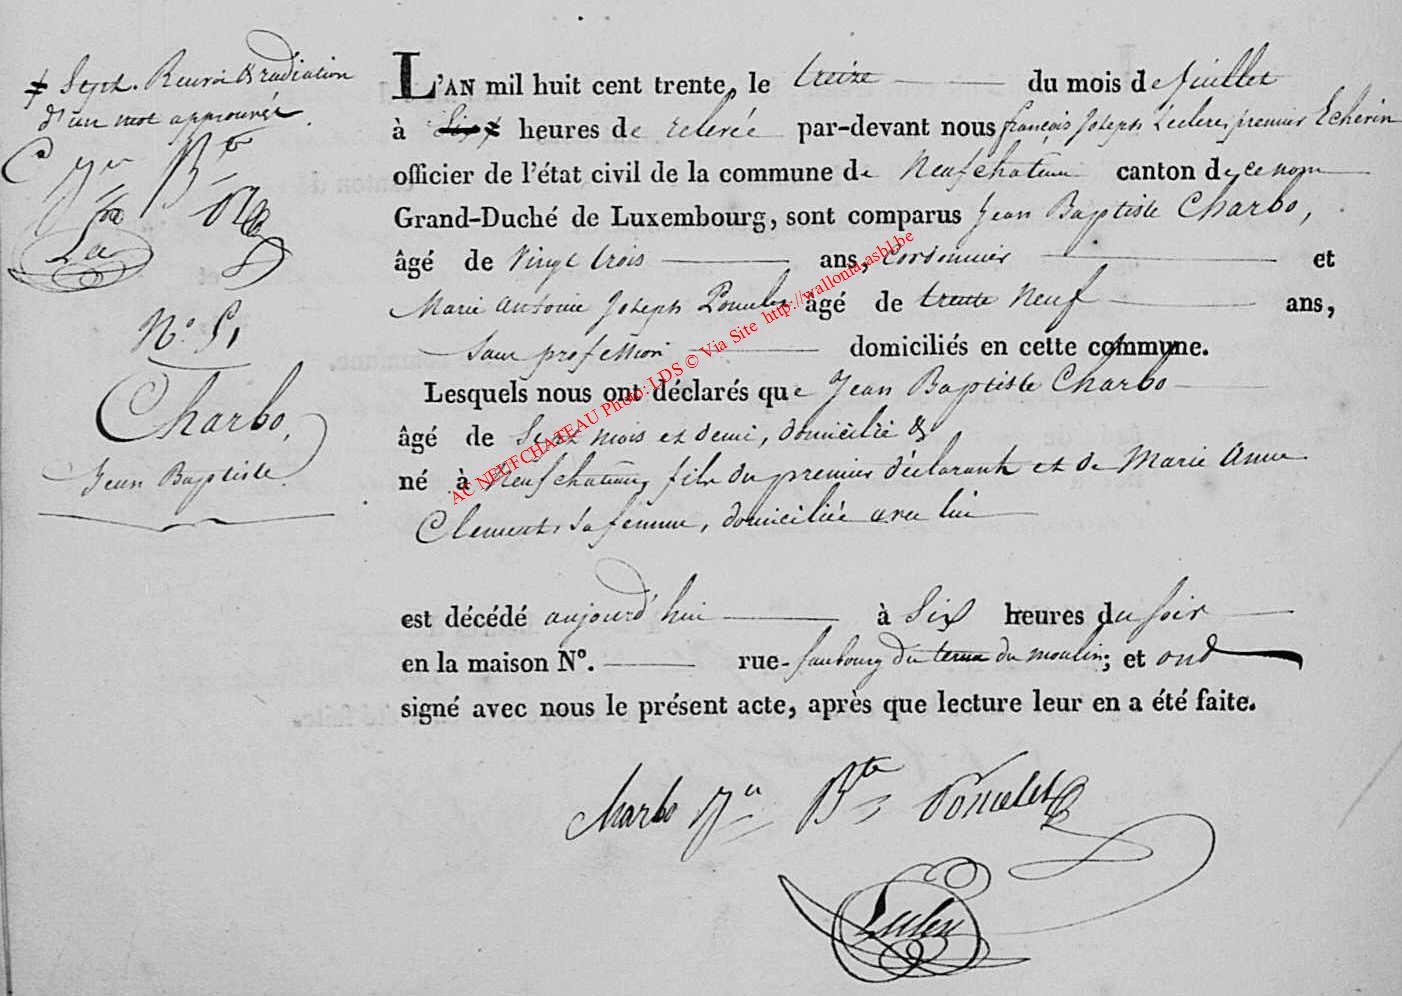 ≠ Sept. Renvoi & radiation
d'un mot approuvés.
C Jn Bte
La
N.° 51
Charbo,
Jean Baptiste
L'AN mil huit cent trente, le treize du mois de Juillet
à Six ≠ heures de relevée par-devant nous françois Joseph Leclere, premier Echevin
officier de l'état civil de la commune de Neufchateau canton de ce nom
Grand-Duché de Luxembourg, sont comparus Jean Baptiste Charbo,
âgé de Vingt trois ans, Cordonnier et
Marie Antoine Joseph Poncelet âgé de trente Neuf ans,
Sans profession domiciliés en cette commune.
Lesquels nous ont déclarés que Jean Baptiste Charbo
âgé de Sept mois et demi, domicilié &
né à Neufchateau, fils du premier déclarant et de Marie Anne
Clement, sa femme, domiciliée avec lui
est décédé aujourd'hui à Six heures du soir
en la maison N°. rue faubourg du du moulin; et ont
signé avec nous le présent acte, après que lecture leur en a été faite.
Charbo Jn Bte Poncelet
Leclere
AC NEUFCHATEAU Photo: LDS © Via Site http://wallonia-asbl.be